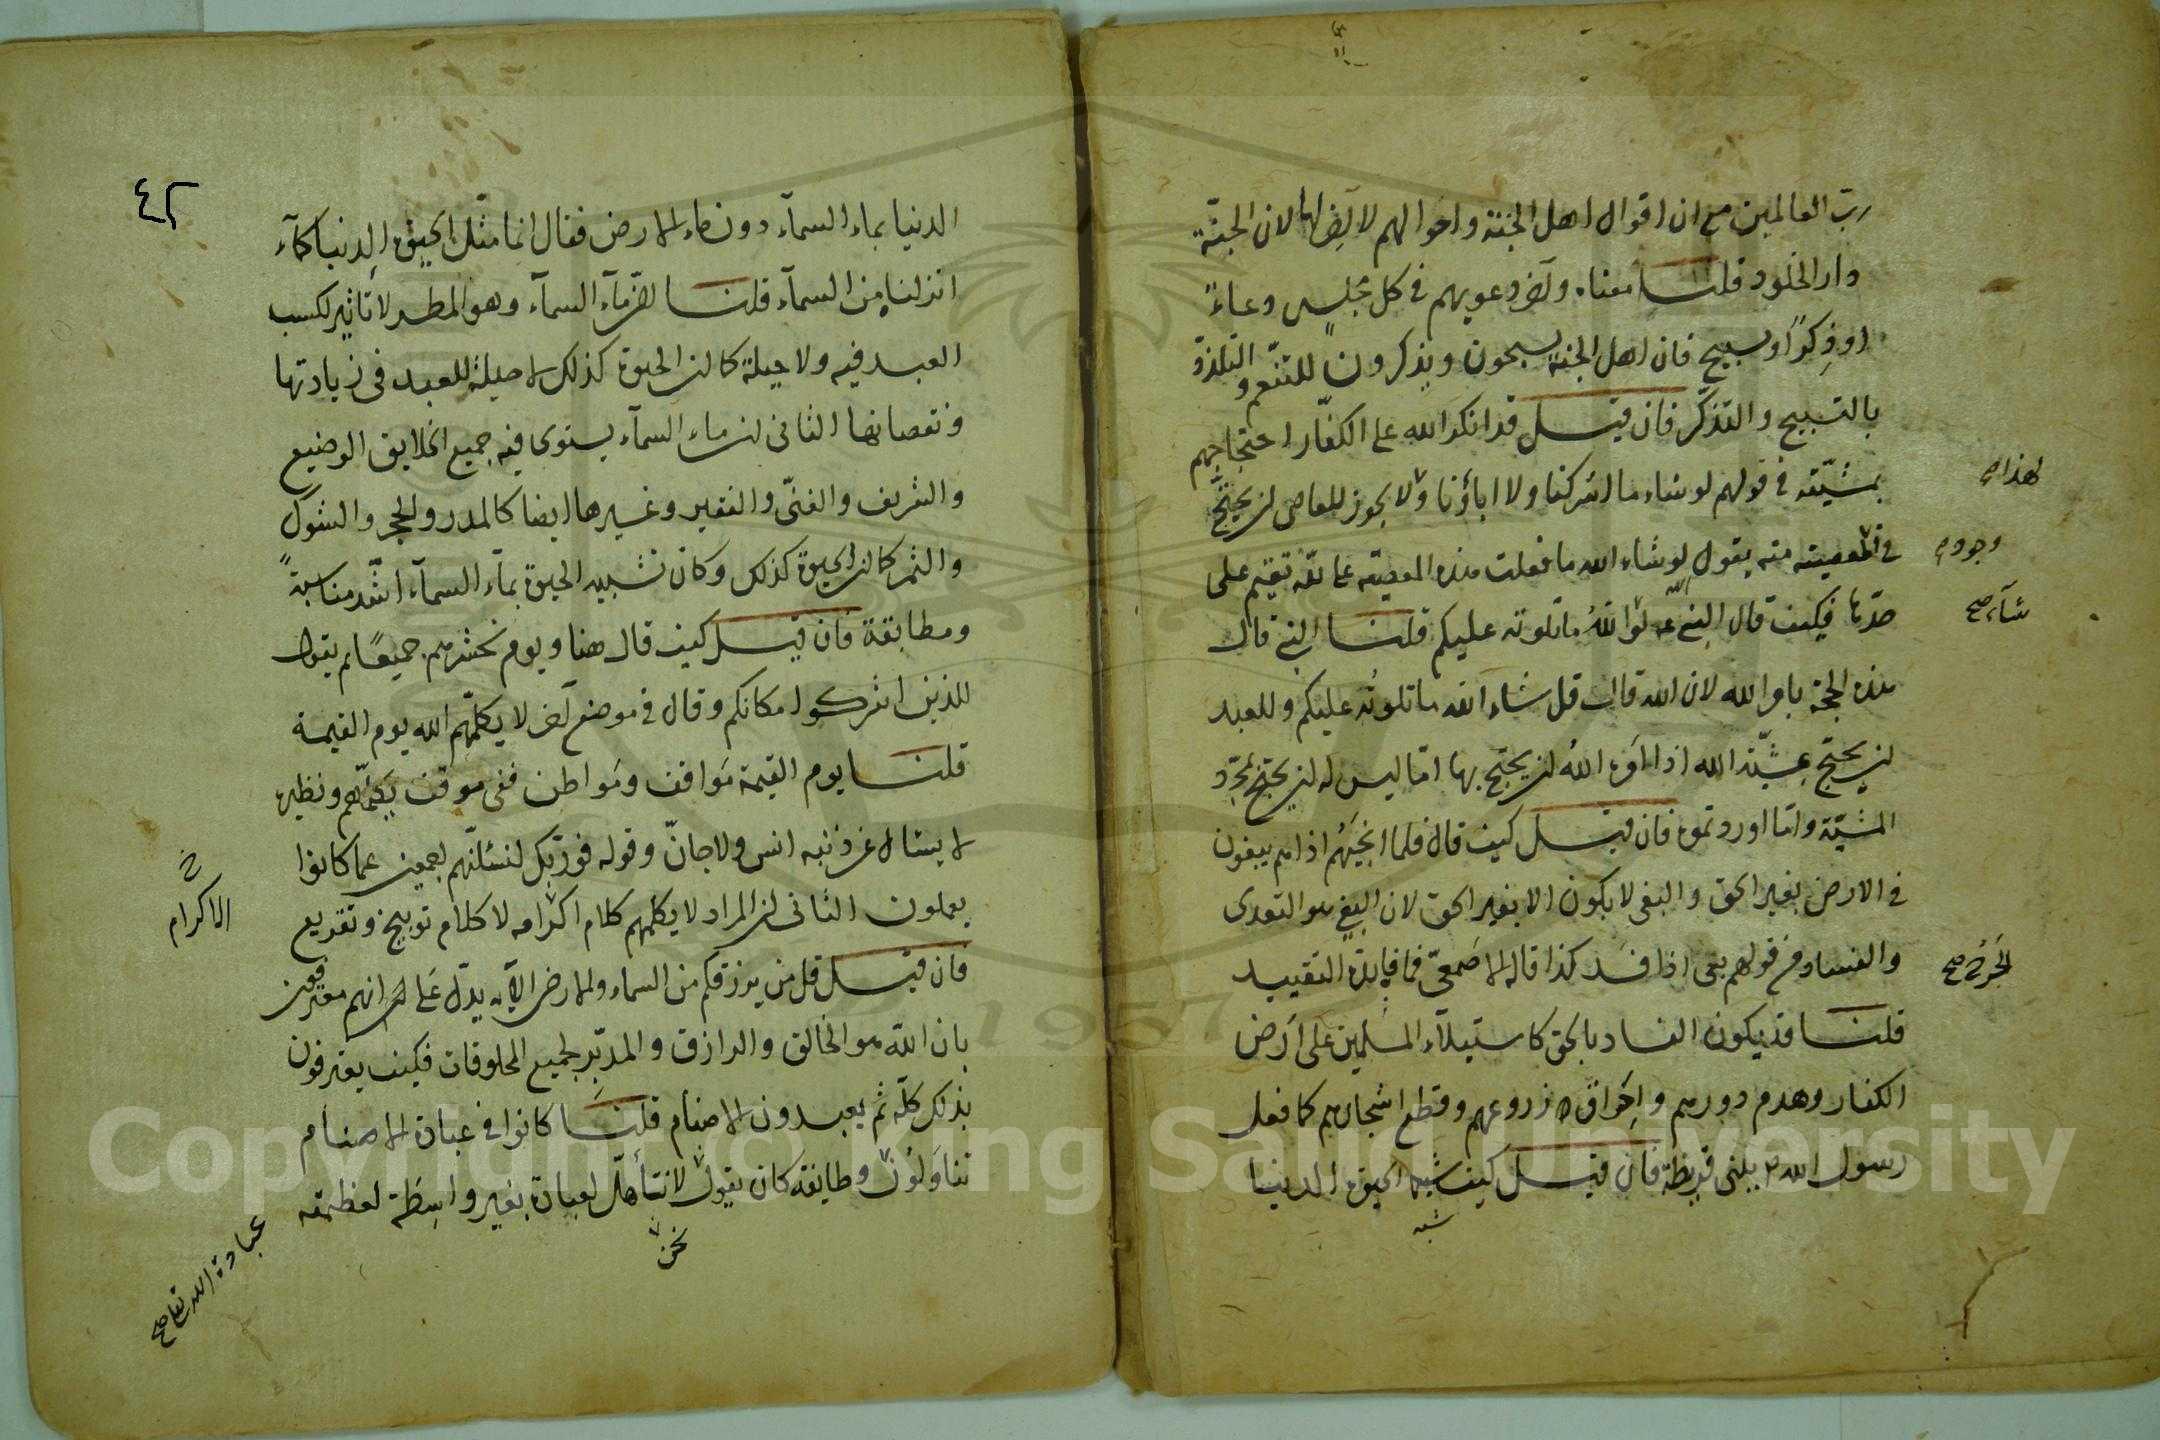 رب العالمين مع ان اقوال اهل الجنة واحوالهم لا آخر لها لان الجنّة
دار الخلود قلنا معناه وآخر دعويهم في كل مجلس دعاءً
او ذِكرًا وتسبيح فان اهل الجنة يسبحون ويذكرون للتنّعم و التلذذ
بالتسبيح والتذكّر فان قيل قد انكر الله على الكفّار احتجاجهم
بمشيّته في قولهم لو شاء ما اشركنا ولا اباؤنا ولا يجوز للعاصى ان يحتجّ
لهذا صح
في المعصيته منه يقول لو شاء الله ما فعلت هذه المعصية تقيم على
وجود
حدّها فكيف قال النبى لو الله ما تلوته عليكم قلنا النبى قال
شآء صح
هذه الحجة بامر الله لان الله قال قل لو شاء الله ما تلوته عليكم وللعبد
ان يحتجّ بمشيّة الله اذا امره اللهُ ان يحتج بها امّا ليس له ان يحتج بمجرّد
المشيّة وانما اوردتموه فان قيل كيف قال فلما انجيهُم اذا هم يبغون
في الارض بغير الحق والبغى لا يكون الا بغير الحق لان البغى هو التعدى
والفساد من قولهم بغى اذا فسد كذا قاله الاصمعىّ فما فايدة التقييد
الجرح صح
قلنا قد يكون الفساد بالحق كاستيلآء المسلمين على ارض
الكفار وهدم دورهم واحراق زروعهم وقطع اشجارهم كما فعل
رسول الله ببنى قريظة فان قيل كيف شبه الحيوة الدنيا
شبه
٤٢
الدنيا بماء السمآء دون ماء الارض فقال انما مثل الحيوة الدنيا كمآء
انزلناه من السمآء قلنا لان مآء السمآء وهو المطر لا تاثير لكسب
العبد فيه ولا حيلة كما ان الحيوة كذلك لا حيلة للعبد فى زيادتها
ونقصانها الثانى ان ماء السمآء يستوى فيه جميع الخلايق الوضيع
والشريف والغنىّ والفقير وغيرها ايضا كالمدر والحجر والشوك
والثمر كما ان الحيوة كذلك وكان تشبيه الحيوة بمآء السمآء اشّد مناسبةً
ومطابقة فان قيل كيف قال هنا ويوم نحشرهم جميعًا ثم يقول
للذين اشركوا مكانكم وقال في موضع آخر لا يكلّمهم الله يوم القيمة
قلنا يوم القيمة مَواقف ومَواطن ففى موقف يكلّمهم ونظيره
لا يسئال عن ذنبه انس ولا جانّ وقوله فورّبك لنسئلنّهم اجمعين عما كانوا
يعملون الثانى ان المراد لا يكلمهم كلام اكرامه لا كلام توبيخ وتقريع
الاكرام
فان قيل قل من يرزقكم من السماء والارض الآية يدّل على انهم معترفين
بان الله هو الخالق والرازق والمدبّر لجميع المخلوقات فكيف يعترفون
بذلك كلّه ثم يعبدون الاصنام قلنا كانوا في عبادة الاصنام
يتأولون وطايفة كان يقول لا نتأهل لعبادة بغير واسطة لعظمته
نحن
عبادة الله تعا صح